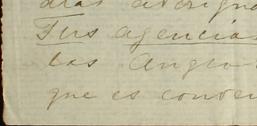 dias averigua
Tus agencias
las Angeo
que es conven